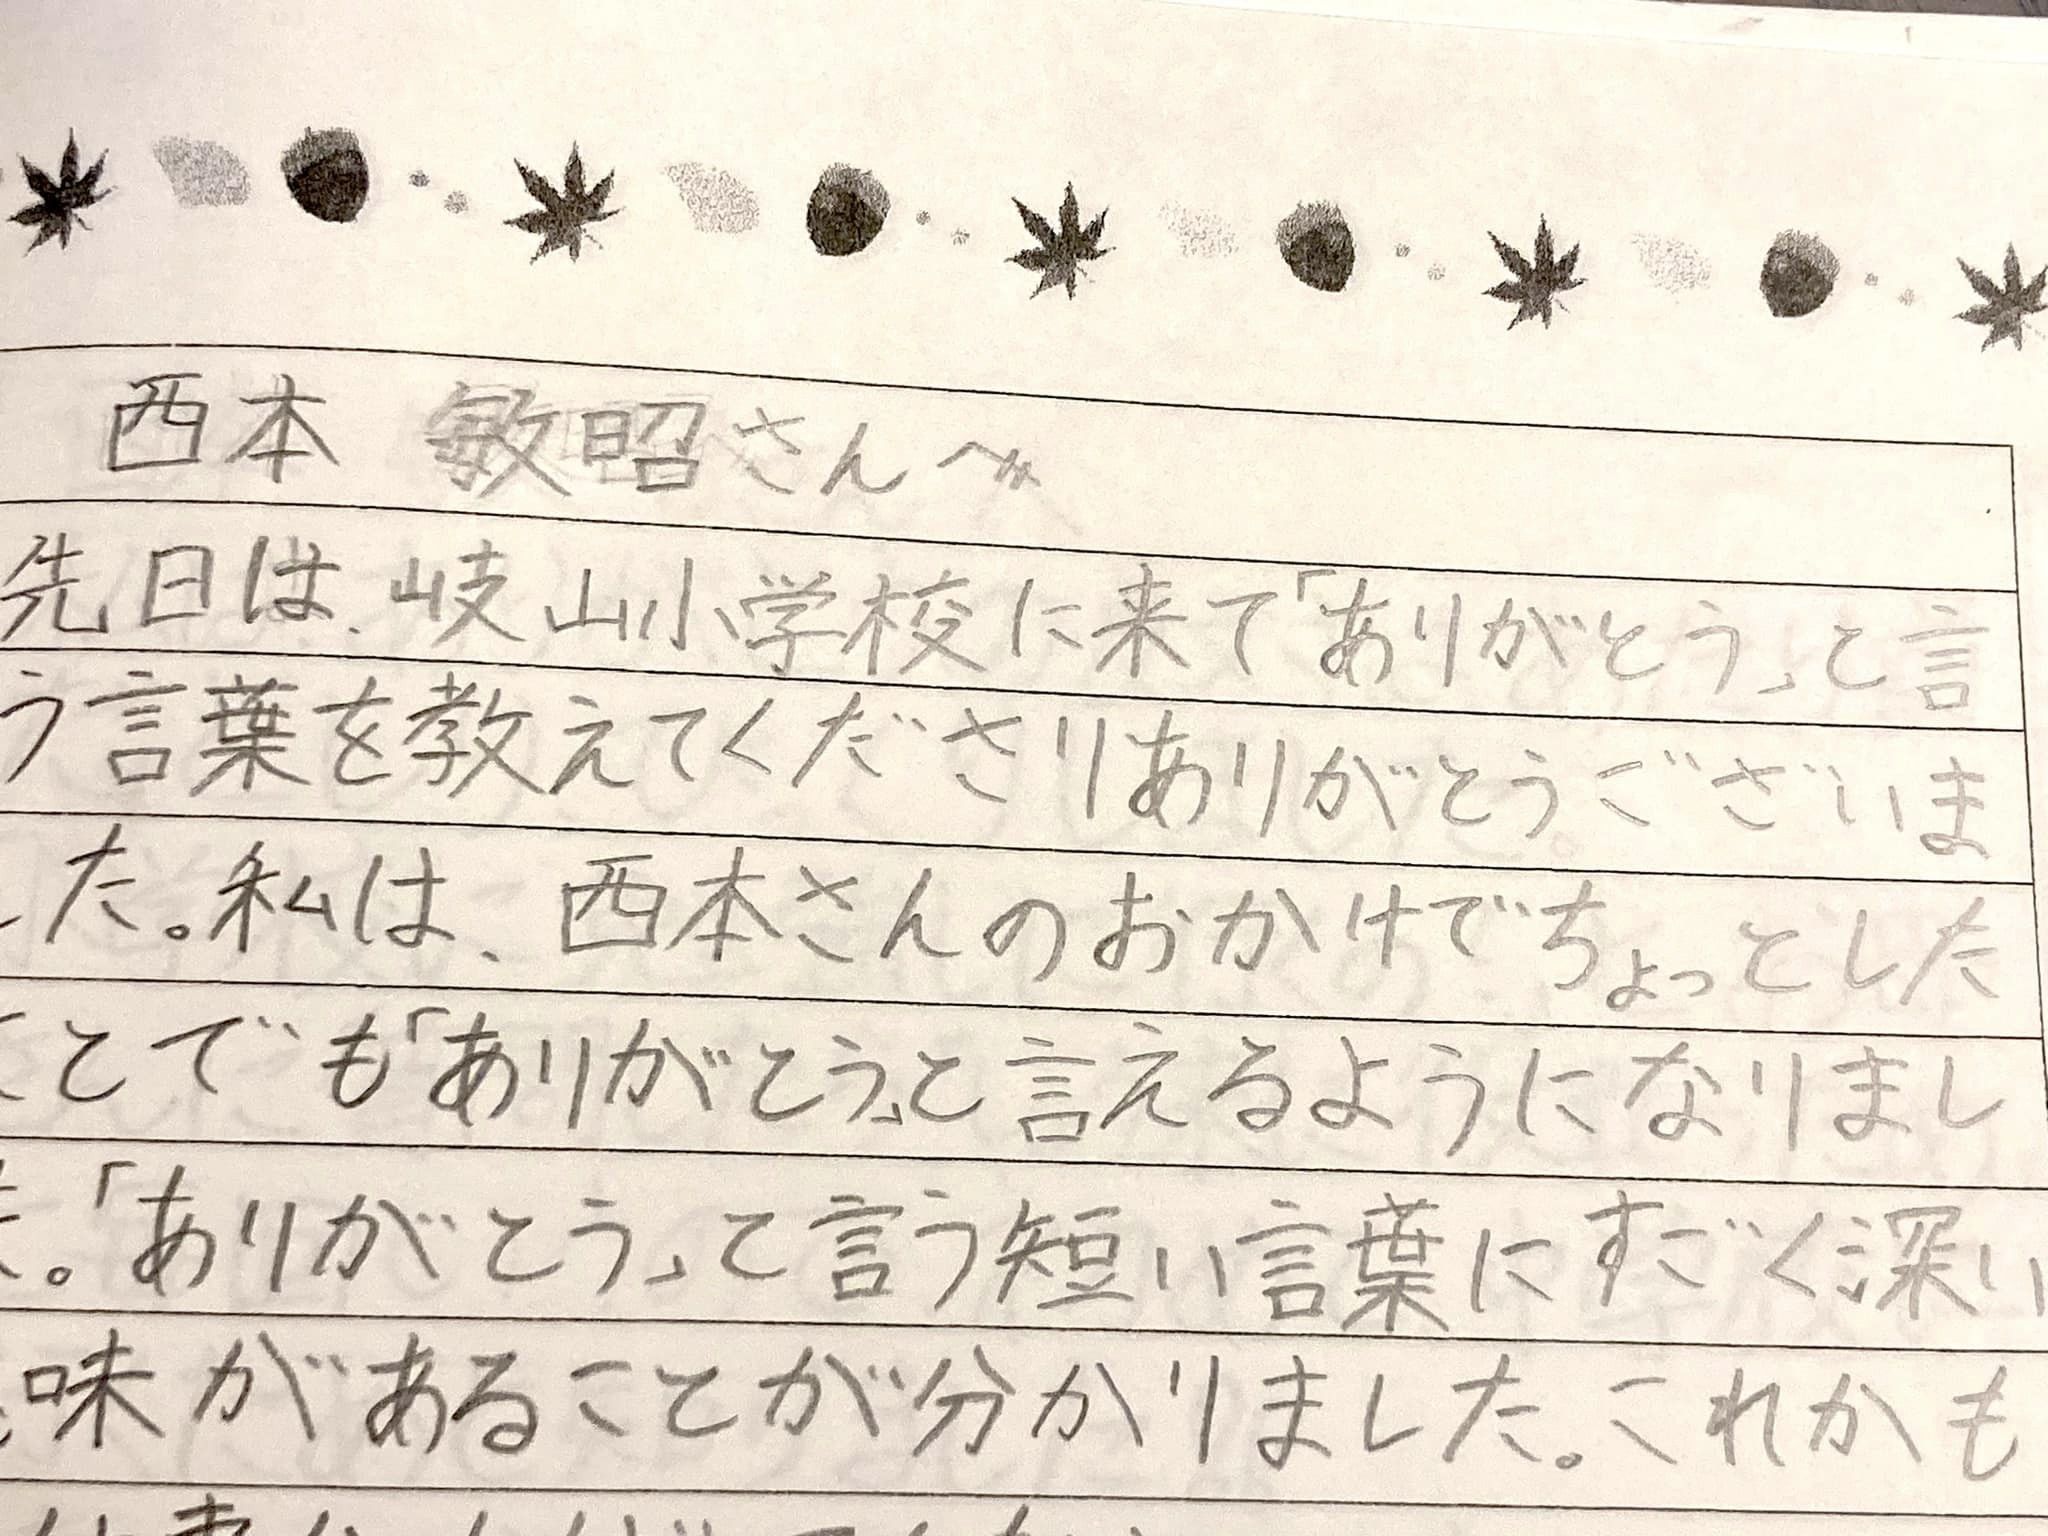 西本 敏昭さんへ
先日は、岐山小学校に来て「ありがとう」と言
う言葉を教えてくださりありがとうございま
した。私は、西本さんのおかげでちょっとした
ことでも「ありがとう」と言えるようになりまし
た。「ありがとう」と言う短い言葉にすごく深い
味があることが分かりました。これかも